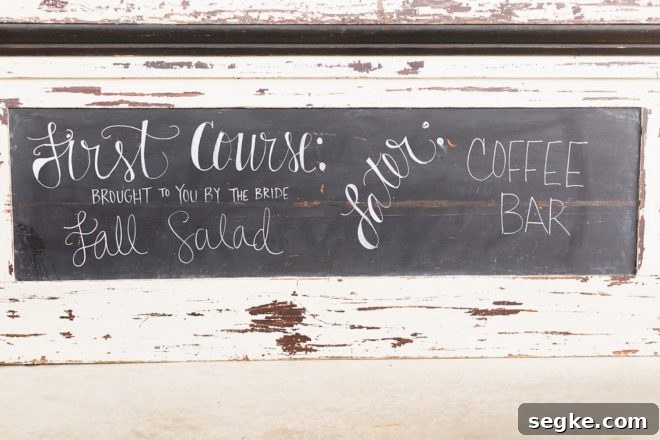 First Course:
BROUGHT TO YOU BY THE BRIDE
Fall Salad
Later:
COFFEE
BAR
segke.com